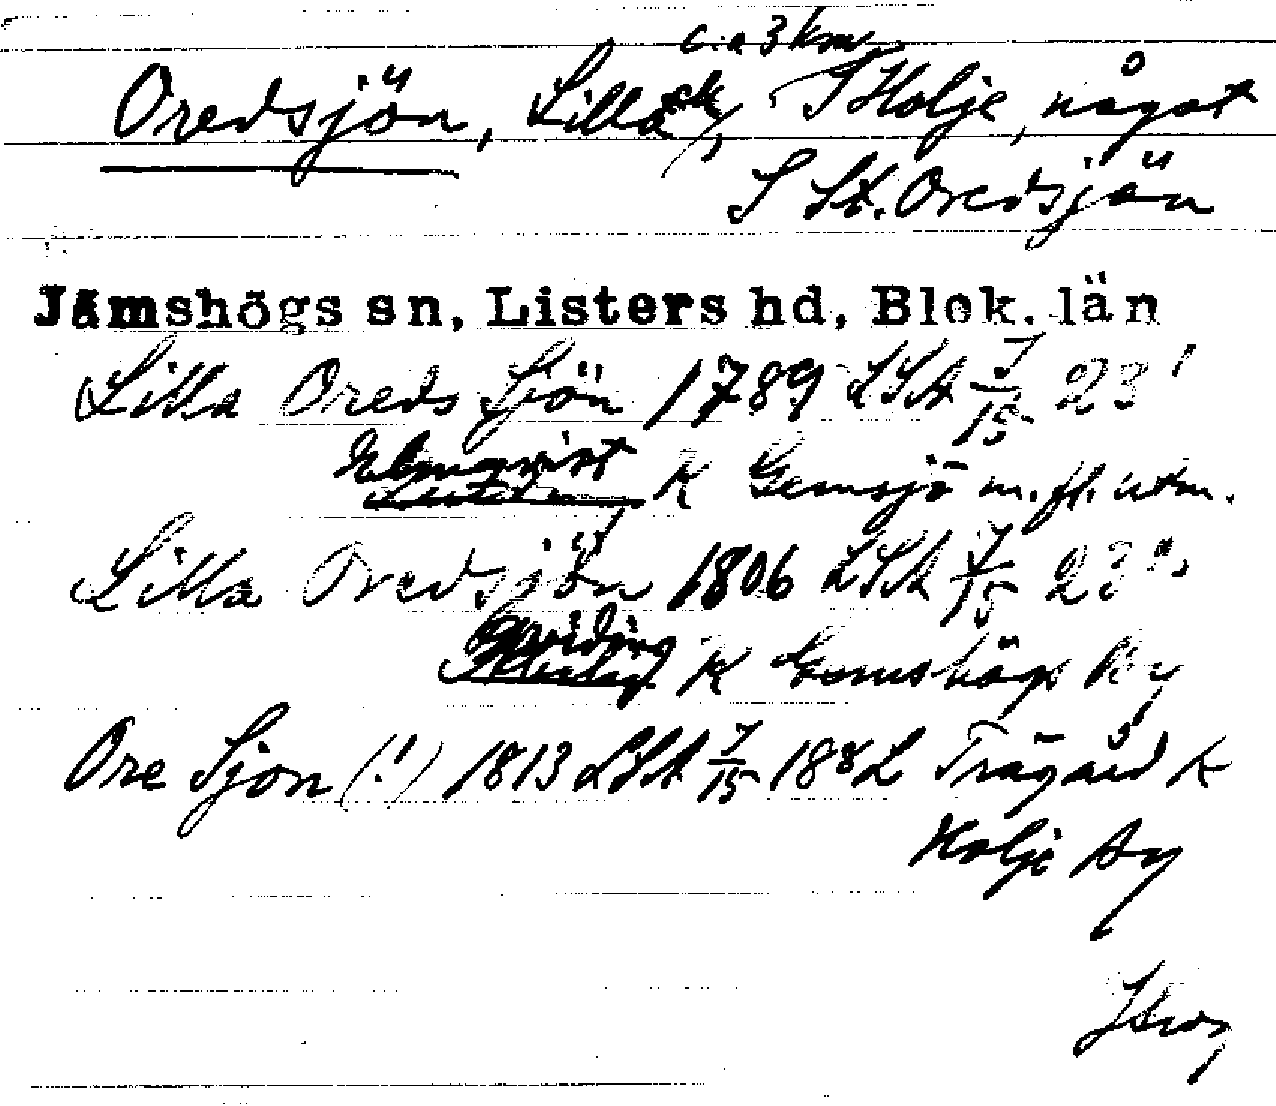 c:a 3 km
Oredsjön, Lilla, sk, S Holje, något
S St. Oredsjön
Jämshögs sn, Listers hd, Blek. län
Lilla Oreds Sjön 1789 LSA 7/15 23'
Elmqvist K Gemsjö m.fl. utm.
Lilla Oredsjön 1806 LSA 7/15 23
K Gemshögs By
Ore Sjon (!) 1813 LSA 7/15 188 L Trägård K
Holje by